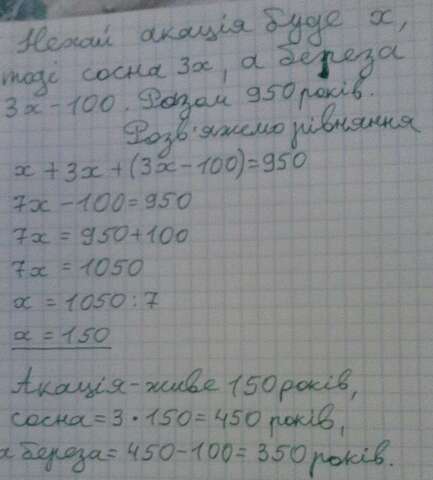 Нехай акація буде x,
тоді сосна 3x, а береза
3x - 100. Разом 950 років.
Розв'яжемо рівняння
x + 3x + (3x - 100) = 950
7x - 100 = 950
7x = 950 + 100
7x = 1050
x = 1050 : 7
x = 150
Акація - живе 150 років,
сосна = 3 · 150 = 450 років,
а береза = 450 - 100 = 350 років.